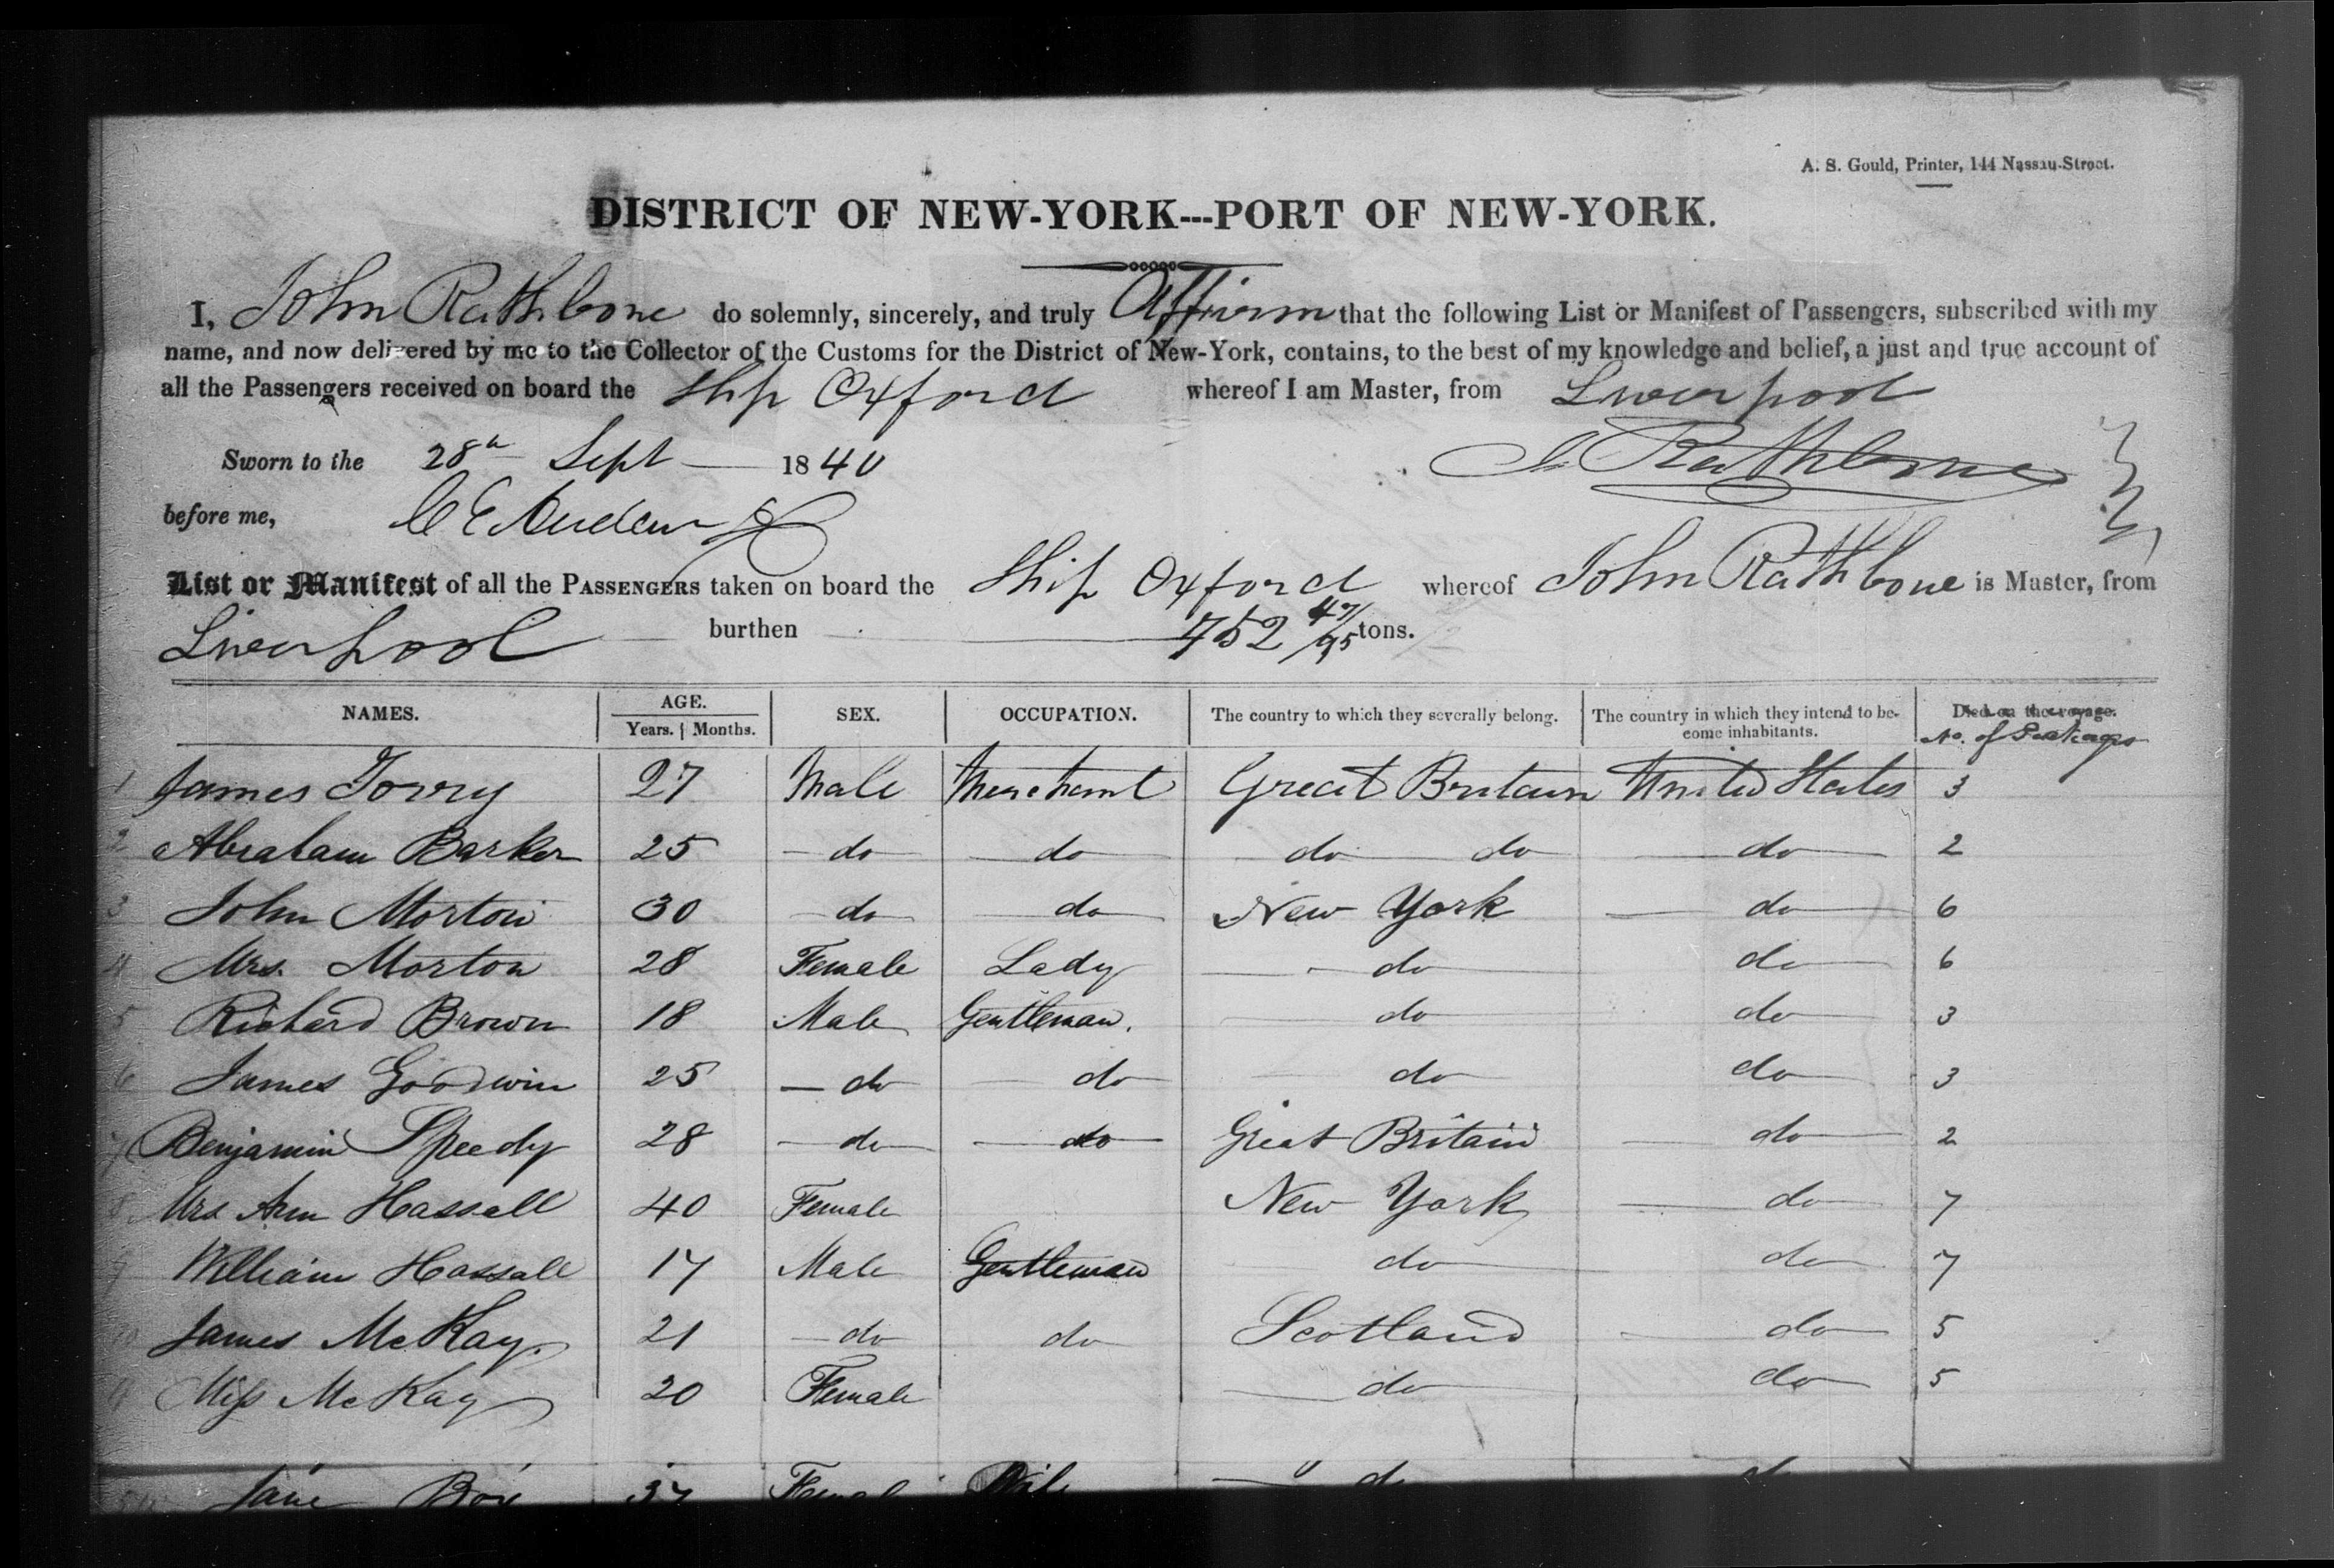 A. S. Gould, Printer, 144 Nassau-Street.
DISTRICT OF NEW-YORK---PORT OF NEW-YORK.
I, John Rathbone do solemnly, sincerely, and truly Affirm that the following List or Manifest of Passengers, subscribed with my
name, and now delivered by me to the Collector of the Customs for the District of New-York, contains, to the best of my knowledge and belief, a just and true account of
all the Passengers received on board the Ship Oxford whereof I am Master, from Liverpool
Sworn to the 28th Sept 1840 J Rathbone
before me,
List or Manifest of all the PASSENGERS taken on board the Ship Oxford whereof John Rathbone is Master, from
Liverpool burthen 752 47/95 tons.
NAMES. AGE. SEX. OCCUPATION. The country to which they severally belong. The country in which they intend to be- Died on the voyage.
Years. Months. come inhabitants. No. of Packages
1 James Torry 27 Male Merchant Great Britain United States 3
2 Abraham Barker 25 do do do do do 2
3 John Morton 30 do do New York do 6
4 Mrs. Morton 28 Female Lady do do 6
5 Richard Brown 18 Male Gentleman. do do 3
6 James Goodwin 25 do do do do 3
7 Benjamin Speedy 28 do do Great Britain do 2
8 Mrs Ann Hassall 40 Female New York do 7
9 William Hassall 17 Male Gentleman do do 7
10 James McKay. 21 do do Scotland do 5
11 Miss McKay 20 Female do do 5
Jane 37 Female do